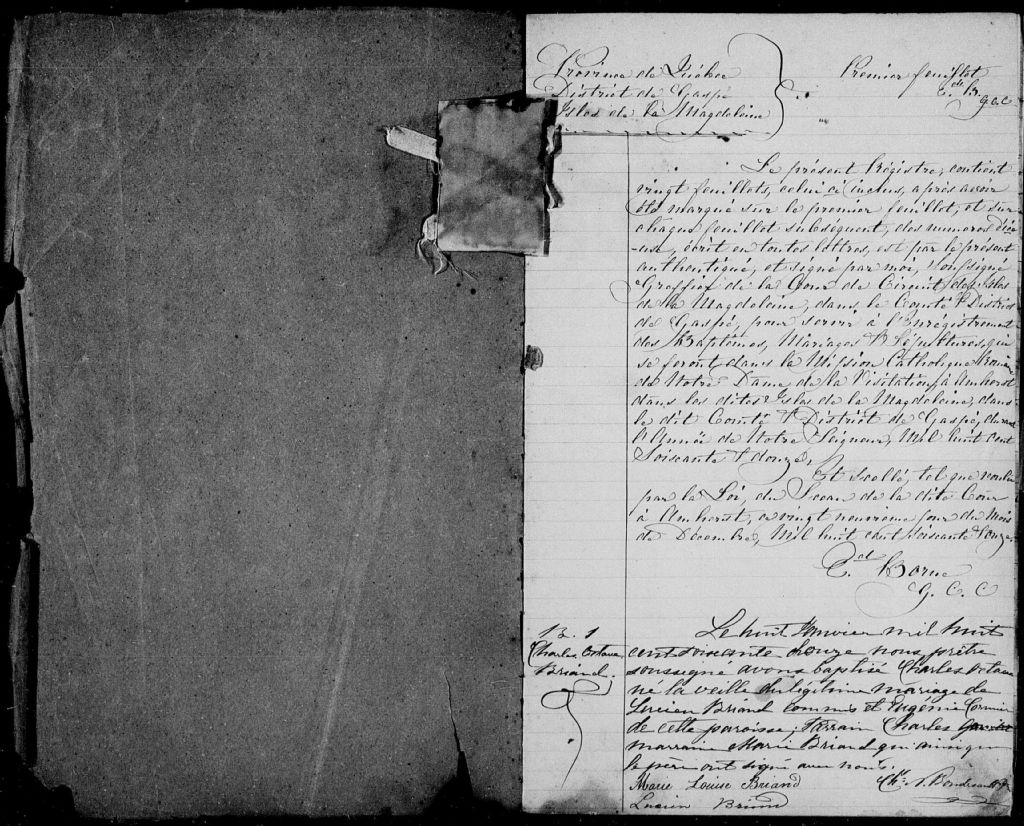 Province de Québec
District de Gaspé
Isles de la Magdeleine
Premier feuillet
Ed. B.
G.C.C
Le présent Régistre, contient
vingt feuillets, celui ci inclus, après avoir
été marqué sur le premier feuillet, et sur
chaque feuillet subséquent, des numeros
écrit en toutes lettres, est par le présent
authentiqué, et signé par moi, soussigné
Greffier de la Cour de Circuit des Isles
de la Magdeleine, dans le Comté & District
de Gaspé, pour servir à l'Enrégistrement
des Baptêmes, Mariages & Sépultures, qui
se feront dans la Mission Catholique
de Notre Dame de la Visitation, à Amherst
dans les dites Isles de la Magdeleine, dans
le dit Comté & District de Gaspé, durant
l'Année de Notre Seigneur, Mil huit cent
Soixante & douze,
Et scellé, tel que voulu
par la Loi, du Sceau de la dite Cour
à Amherst, ce vingt neuvième jour du Mois
de Décembre, Mil huit cent soixante & onze.
Ed. Borne
G. C. C
B. 1
Charles Octave
Briand.
Le huit Janvier mil huit
cent soixante & douze nous prêtre
soussigné avons baptisé Charles Octave
né la veille du légitime mariage de
Lucien Briand commis et Eugénie Cormier
de cette paroisse, Parrain Charles
marraine Marie Briand qui ainsi que
le père ont signé avec nous.
Marie Louise Briand
Chs. N. Boudreault Ptr
Lucien Briand